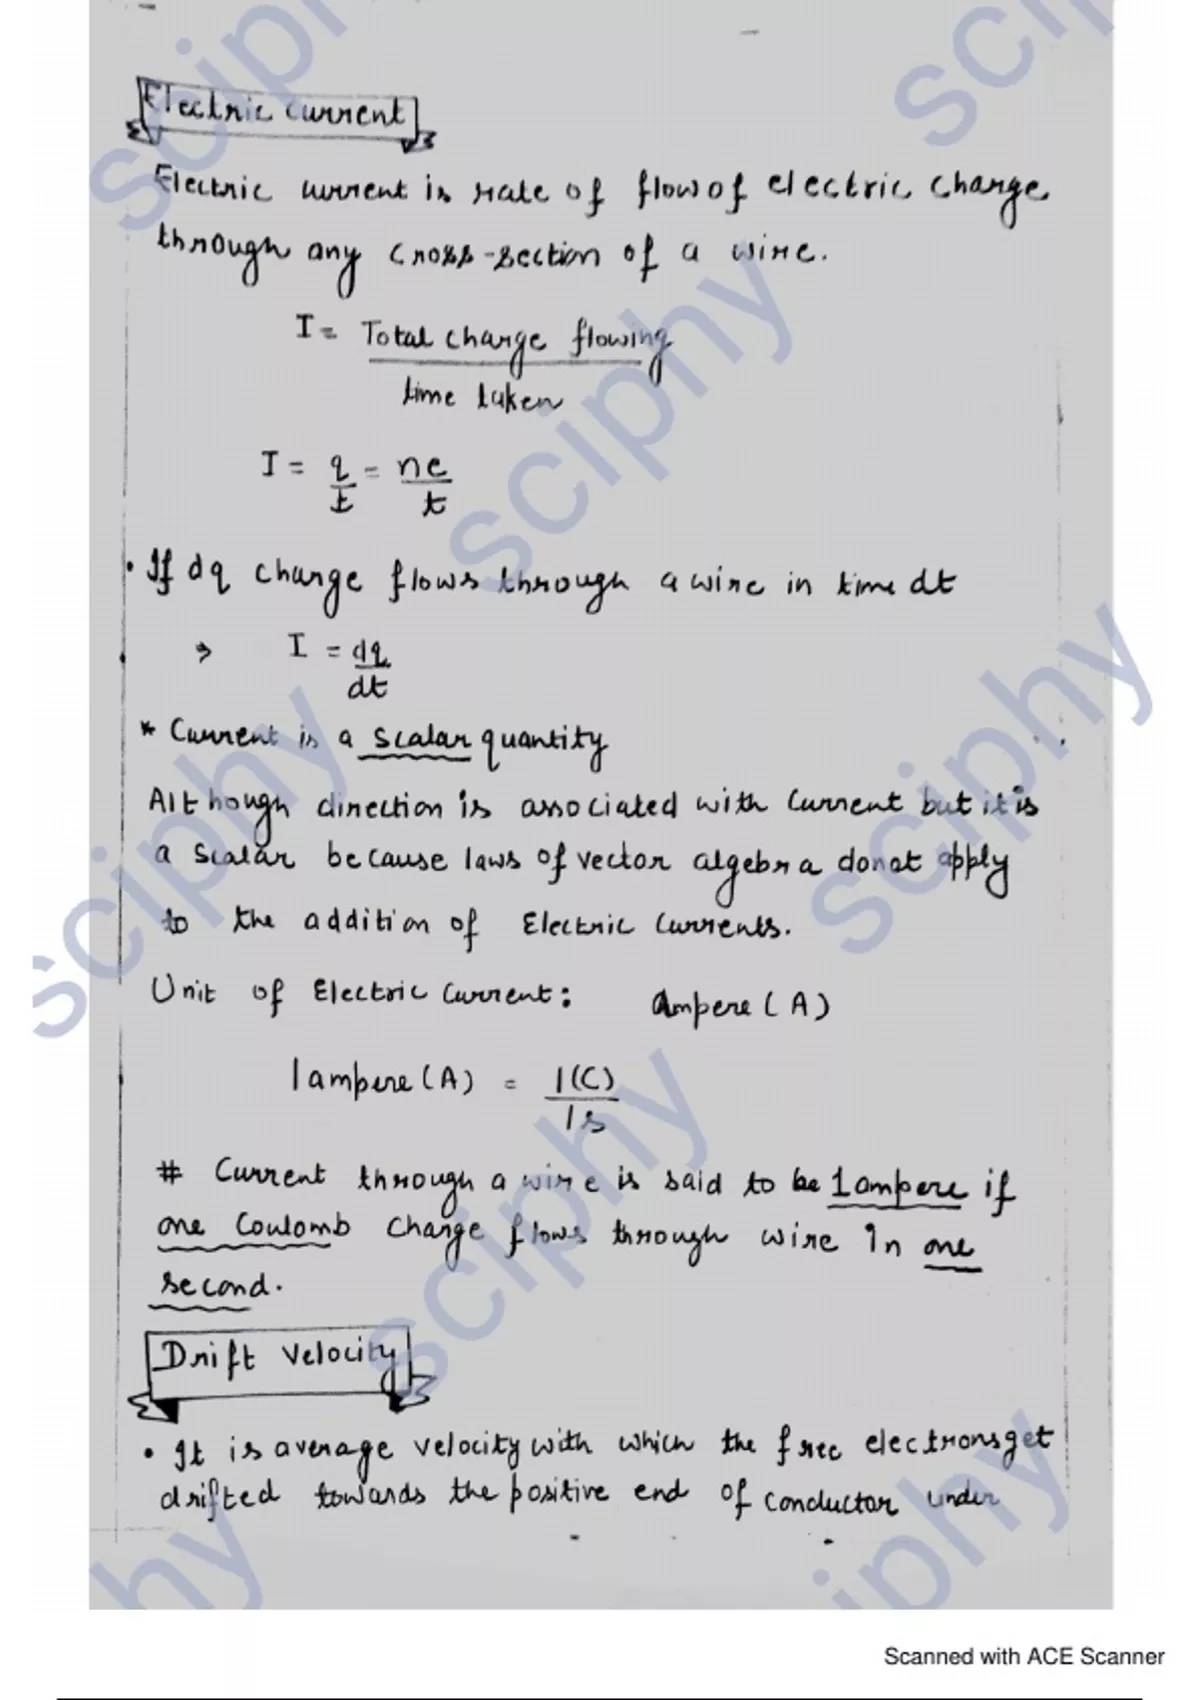 Electric current
Electric current is rate of flow of electric charge
through any cross-section of a wire.
I = Total charge flowing
time taken
I = q/t = ne/t
• If dq charge flows through a wire in time dt
⇒ I = dq/dt
* Current is a scalar quantity
Although direction is associated with current but it is
a scalar because laws of vector algebra donot apply
to the addition of Electric currents.
Unit of Electric current: Ampere (A)
1 ampere (A) = 1(C)/1s
# Current through a wire is said to be 1 ampere if
one coulomb charge flows through wire in one
second.
Drift velocity
• It is average velocity with which the free electrons get
drifted towards the positive end of conductor under
sciphy
Scanned with ACE Scanner